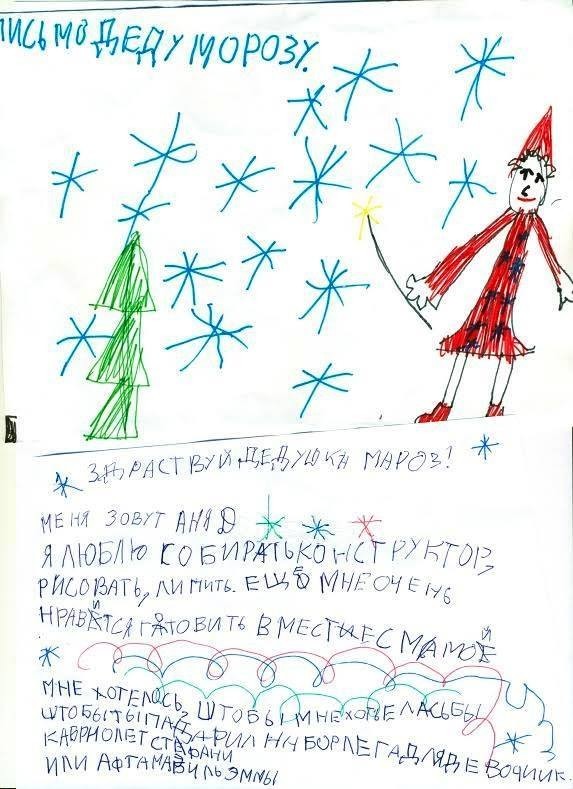 ПИСЬМО ДЕДУ МОРОЗУ.
ЗДРАСТВУЙ ДЕДУШКА МАРОЗ!
МЕНЯ ЗОВУТ АНЯ
Я ЛЮБЛЮ СОБИРАТЬ КОНСТРУКТОР,
РИСОВАТЬ, ЛИПИТЬ. ЕЩЁ МНЕ ОЧЕНЬ
НРАВИТСЯ ГАТОВИТЬ ВМЕСТЕ С МАМОЙ
МНЕ ХОТЕЛОСЬ ШТОБЫ МНЕ ХОТЕЛАСЬ БЫ
ШТОБЫ ТЫ ПАДАРИЛ НАБОР ЛЕГА ДЛЯ ДЕВОЧИК
КАБРИОЛЕТ СТЕФАНИ
ИЛИ АФТАМАБИЛЬ ЭММЫ